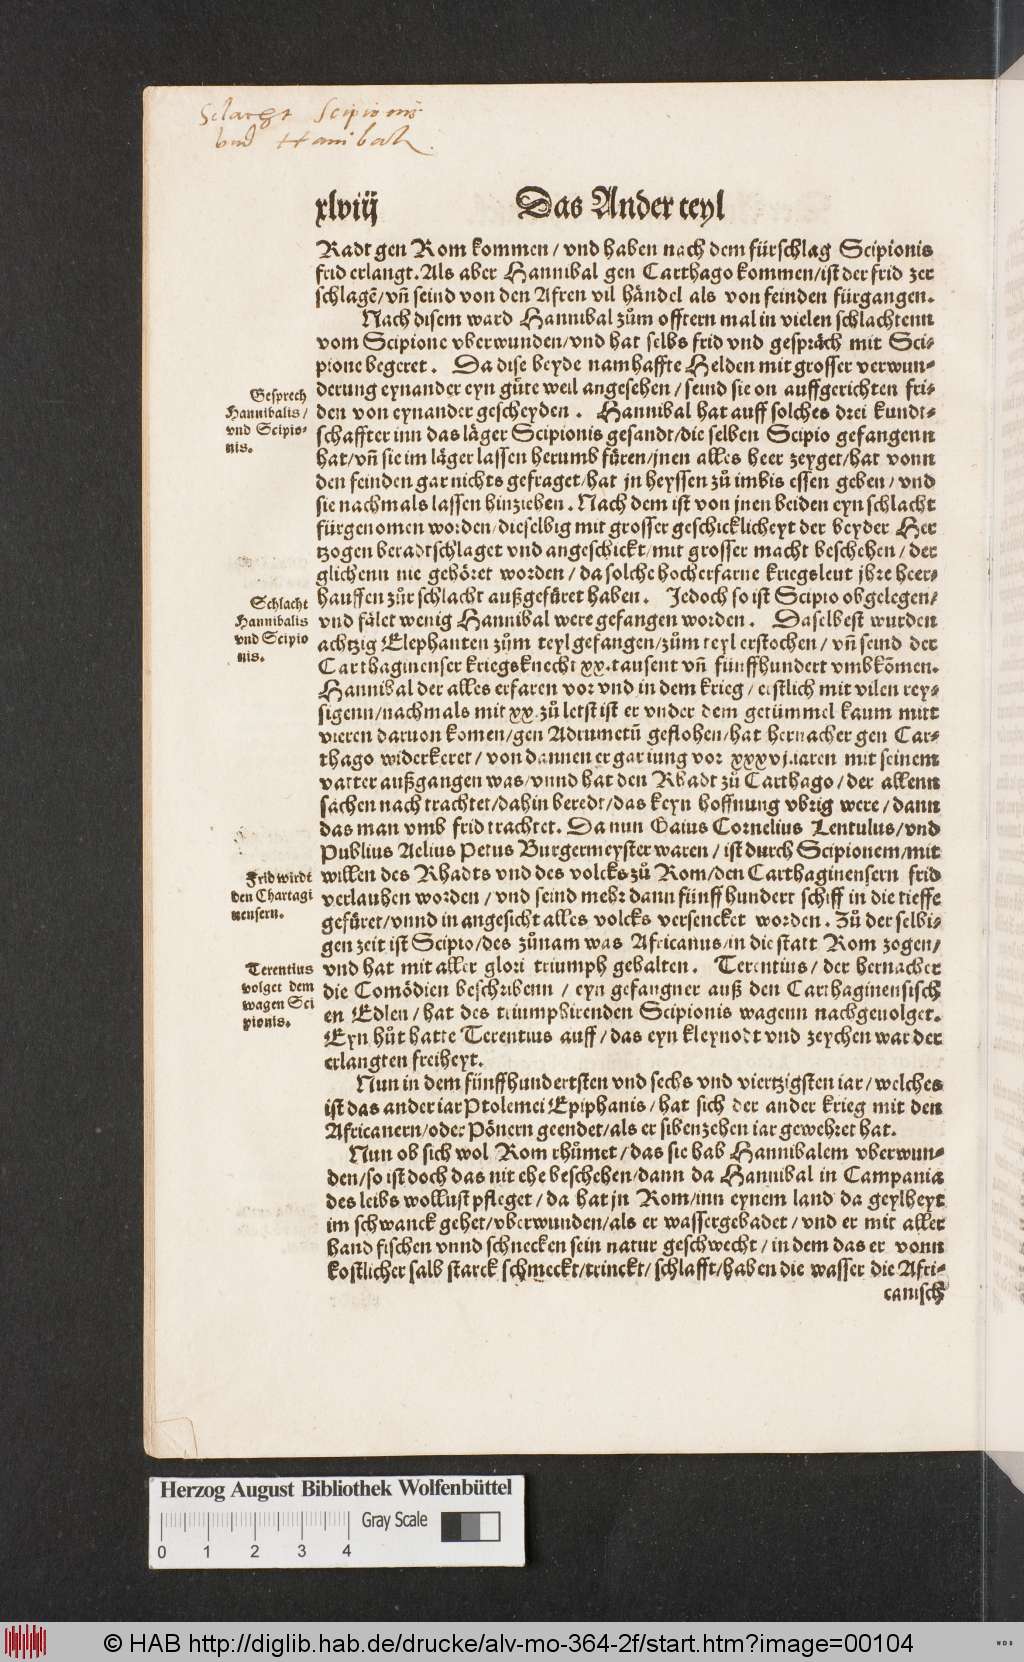 Sclacht Scipionis
vnd Hanibals.
xlviij
Das Ander teyl
Radt gen Rom kommen / vnd haben nach dem fürschlag Scipionis
frid erlangt. Als aber Hannibal gen Carthago kommen / ist der frid zer
schlagē / vñ seind von den Afren vil händel als von feinden fürgangen.
Nach disem ward Hannibal zům offtern mal in vielen schlachtenn
vom Scipione vberwunden / vnd hat selbs frid vnd gespräch mit Sci-
pione begeret. Da dise beyde namhaffte Helden mit grosser verwun-
derung eynander eyn gůte weil angesehen / seind sie on auffgerichten fri-
den von eynander gescheyden. Hannibal hat auff solches drei kundt-
schaffter inn das läger Scipionis gesandt / die selben Scipio gefangenn
hat / vñ sie im läger lassen herumb füren / jnen alles heer zeyget / hat vonn
den feinden gar nichts gefraget / hat jn heyssen zů imbis essen geben / vnd
sie nachmals lassen hinziehen. Nach dem ist von jnen beiden eyn schlacht
fürgenomen worden / dieselbig mit grosser geschicklicheyt der beyder Her
tzogen beradtschlaget vnd angeschickt / mit grosser macht beschehen / der
glichenn nie gehöret worden / da solche hocherfarne kriegsleut jhre heer-
hauffen zůr schlacht außgefüret haben. Jedoch so ist Scipio obgelegen /
vnd fälet wenig Hannibal were gefangen worden. Daselbest wurden
achtzig Elephanten zům teyl gefangen / zům teyl erstochen / vñ seind der
Carthaginenser kriegsknecht xx. tausent vñ fünffhundert vmbkōmen.
Hannibal der alles erfaren vor vnd in dem krieg / erstlich mit vilen rey-
sigenn / nachmals mit xx. zů letst ist er vnder dem getümmel kaum mitt
vieren daruon komen / gen Adrumetū geflohen / hat hernacher gen Car-
thago widerkeret / von dannen er gar iung vor xxxvj. iaren mit seinem
vatter außgangen was / vnnd hat den Rhadt zů Carthago / der allenn
sachen nach trachtet / dahin beredt / das keyn hoffnung vbrig were / dann
das man vmb frid trachtet. Da nun Gaius Cornelius Lentulus / vnd
Publius Aelius Petus Burgermeyster waren / ist durch Scipionem / mit
willen des Rhadts vnd des volcks zů Rom / den Carthaginensern frid
verlauhen worden / vnd seind mehr dann fünff hundert schiff in die tieffe
gefüret / vnnd in angesicht alles volcks versencket worden. Zů der selbi-
gen zeit ist Scipio / des zůnam was Africanus / in die statt Rom zogen /
vnd hat mit aller glori triumph gehalten. Terentius / der hernacher
die Comödien beschribenn / eyn gefangner auß den Carthaginensisch
en Edlen / hat des triumphirenden Scipionis wagenn nachgeuolget.
Eyn hůt hatte Terentius auff / das eyn kleynodt vnd zeychen war der
erlangten freiheyt.
Nun in dem fünffhundertsten vnd sechs vnd viertzigsten iar / welches
ist das ander iar Ptolemei Epiphanis / hat sich der ander krieg mit den
Africanern / oder Pönern geendet / als er sibenzehen iar gewehret hat.
Nun ob sich wol Rom rhůmet / das sie hab Hannibalem vberwun-
den / so ist doch das nit ehe beschehen / dann da Hannibal in Campania
des leibs wollust pfleget / da hat jn Rom / inn eynem land da geylheyt
im schwanck gehet / vberwunden / als er wassergebadet / vnd er mit aller
hand fischen vnnd schnecken sein natur geschwecht / in dem das er vonn
kostlicher salb starck schmeckt / trinckt / schlafft / haben die wasser die Afri-
canisch
Gesprech
Hannibalis /
vnd Scipio-
nis.
Schlacht
Hannibalis
vnd Scipio
nis.
Frid wirdt
den Chartagi
nensern.
Terentius
volget dem
wagen Sci
pionis.
Herzog August Bibliothek Wolfenbüttel
Gray Scale
0 1 2 3 4
© HAB http://diglib.hab.de/drucke/alv-mo-364-2f/start.htm?image=00104